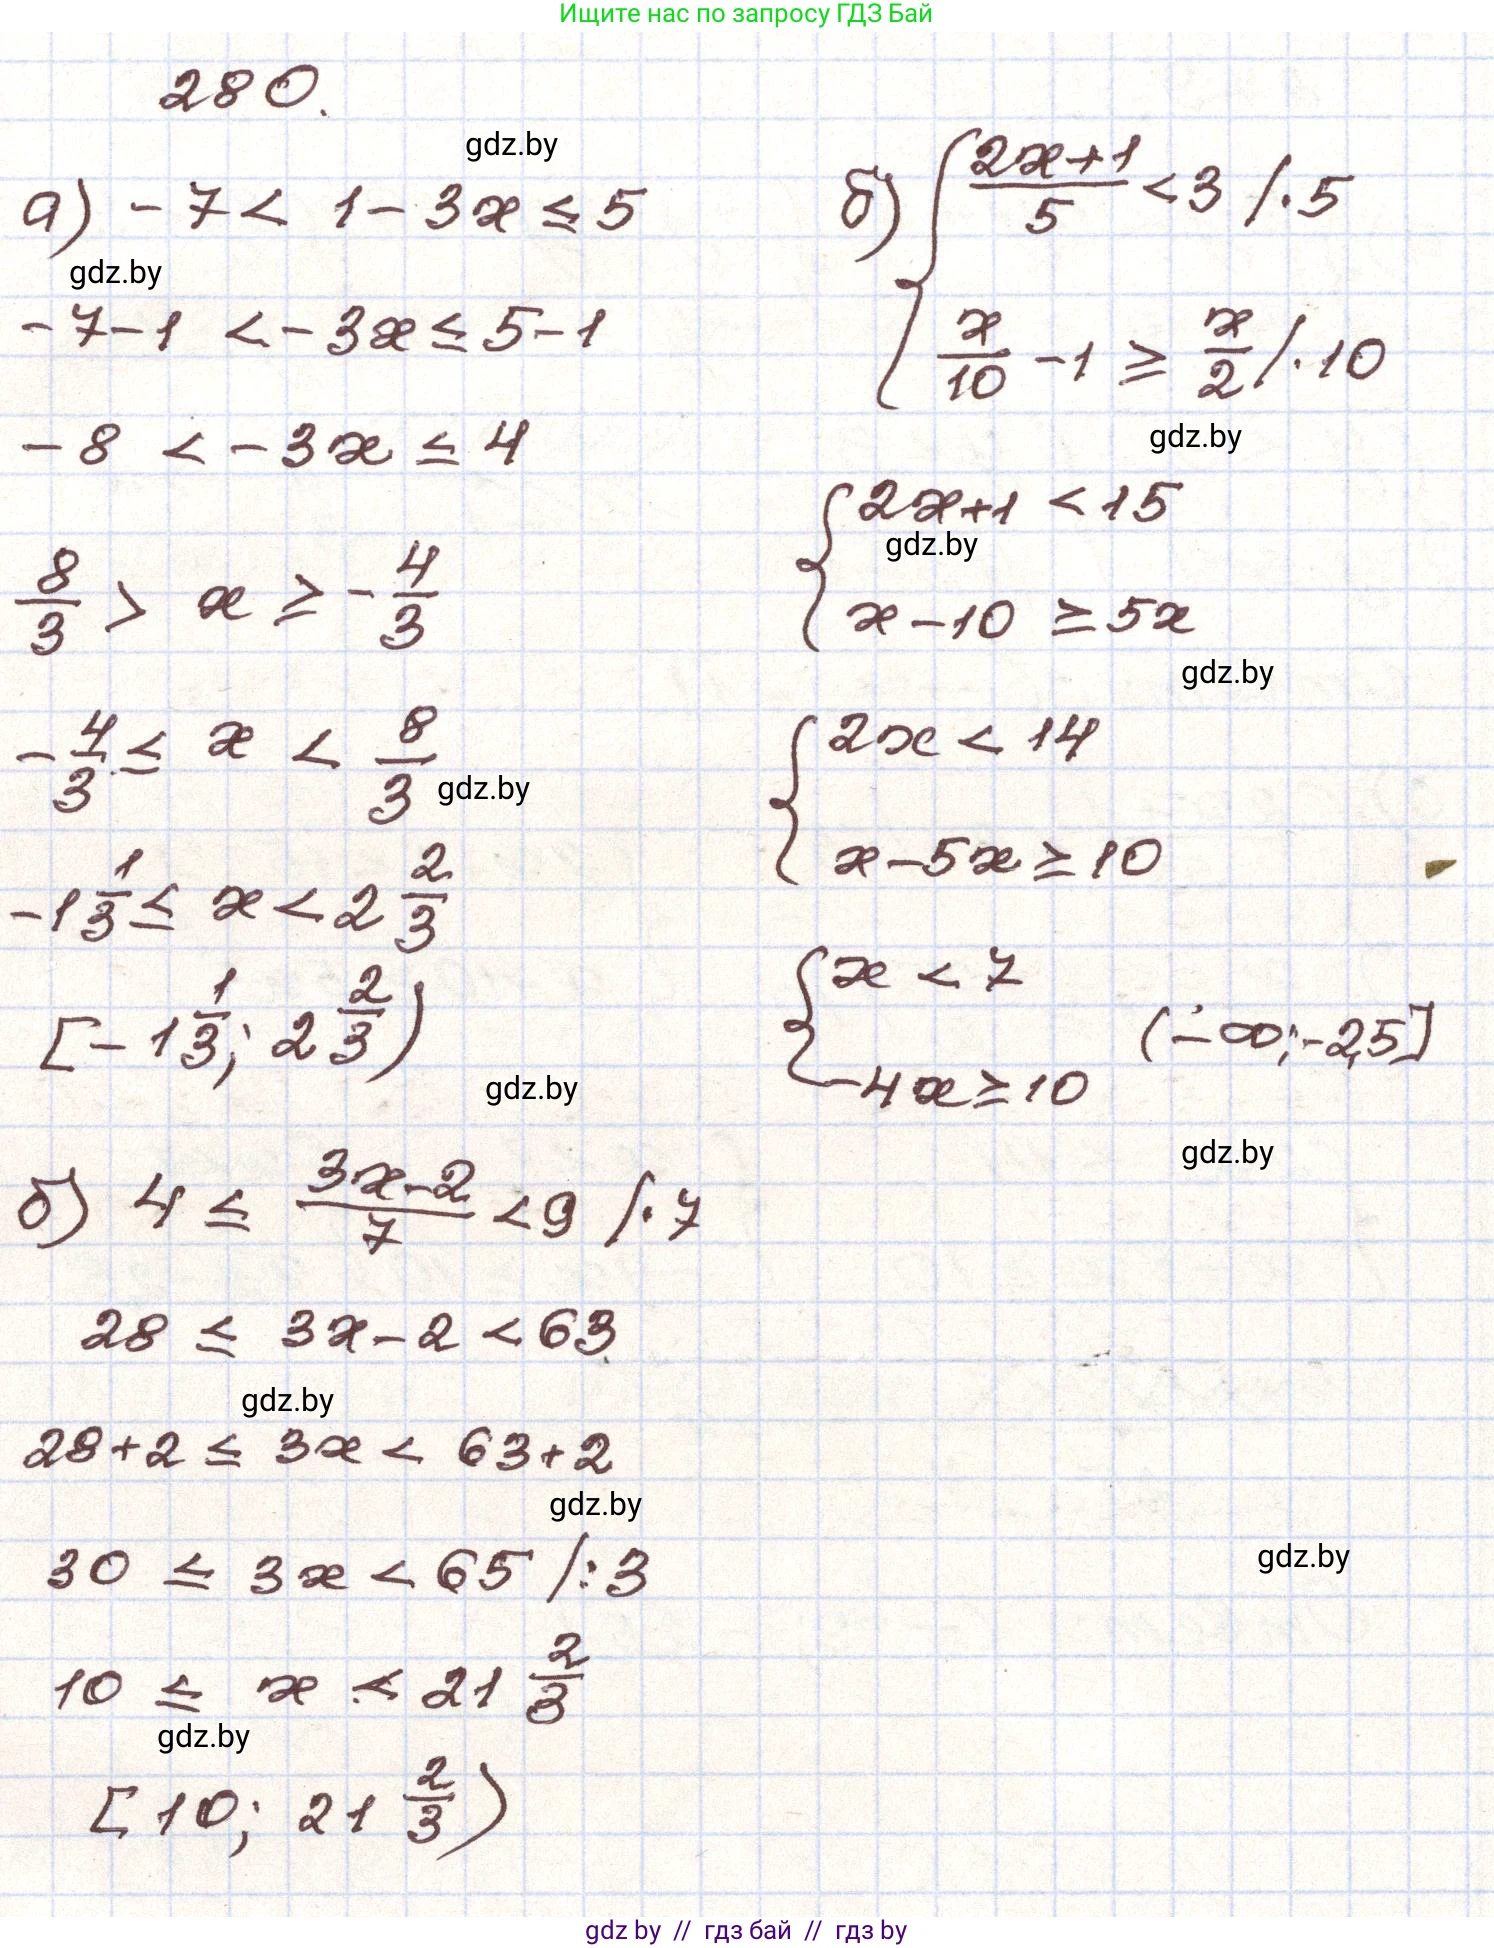 Ищите нас по запросу ГДЗ Бай
280.
gdz.by
а) -7 < 1 - 3x ≤ 5
gdz.by
-7-1 < -3x ≤ 5-1
-8 < -3x ≤ 4
8/3 > x ≥ -4/3
-4/3 ≤ x < 8/3
gdz.by
-1 1/3 ≤ x < 2 2/3
[-1 1/3; 2 2/3)
gdz.by
б) 4 ≤ (3x-2)/7 < 9 /·7
28 ≤ 3x-2 < 63
gdz.by
28+2 ≤ 3x < 63+2
gdz.by
30 ≤ 3x < 65 /:3
10 ≤ x < 21 2/3
gdz.by
[10; 21 2/3)
б) { (2x+1)/5 < 3 /·5
x/10 - 1 ≥ x/2 /·10
gdz.by
{ 2x+1 < 15
gdz.by
x-10 ≥ 5x
gdz.by
{ 2x < 14
x-5x ≥ 10
{ x < 7
(-∞; -2,5]
-4x ≥ 10
gdz.by
gdz.by
gdz by // гдз бай // гдз by